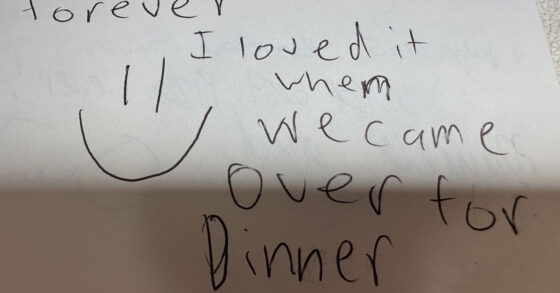 forever
I loved it
whem
we came
over for
Dinner